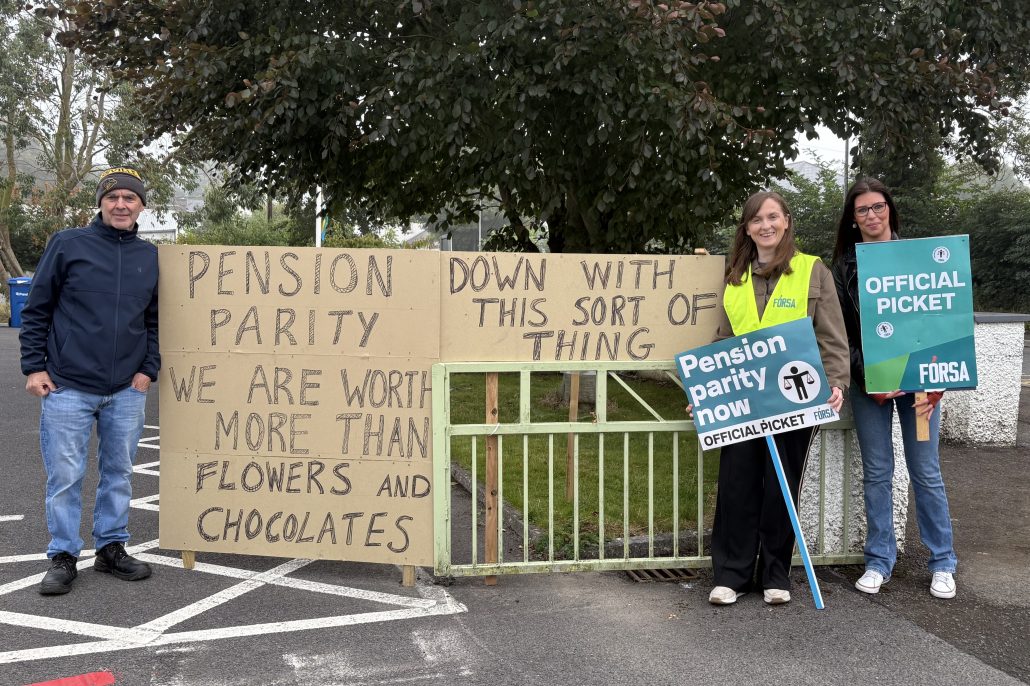 PENSION
PARITY
WE ARE WORTH
MORE THAN
FLOWERS AND
CHOCOLATES
DOWN WITH
THIS SORT OF
THING
FÓRSA
Pension
parity
now
OFFICIAL PICKET
FÓRSA
OFFICIAL
PICKET
FÓRSA